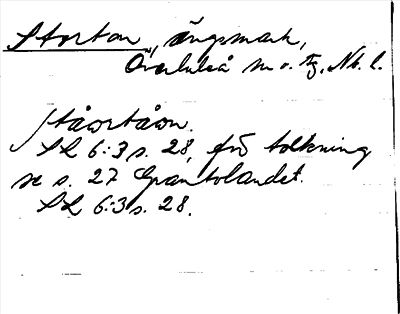 Stortån, ängsmark,
Överluleå sn o. tg, Nb. l.
ståo̯rtåo̯n.
SL 6:3 s. 28, för tolkning
se s. 27 Grantolandet.
SL 6:3 s. 28.